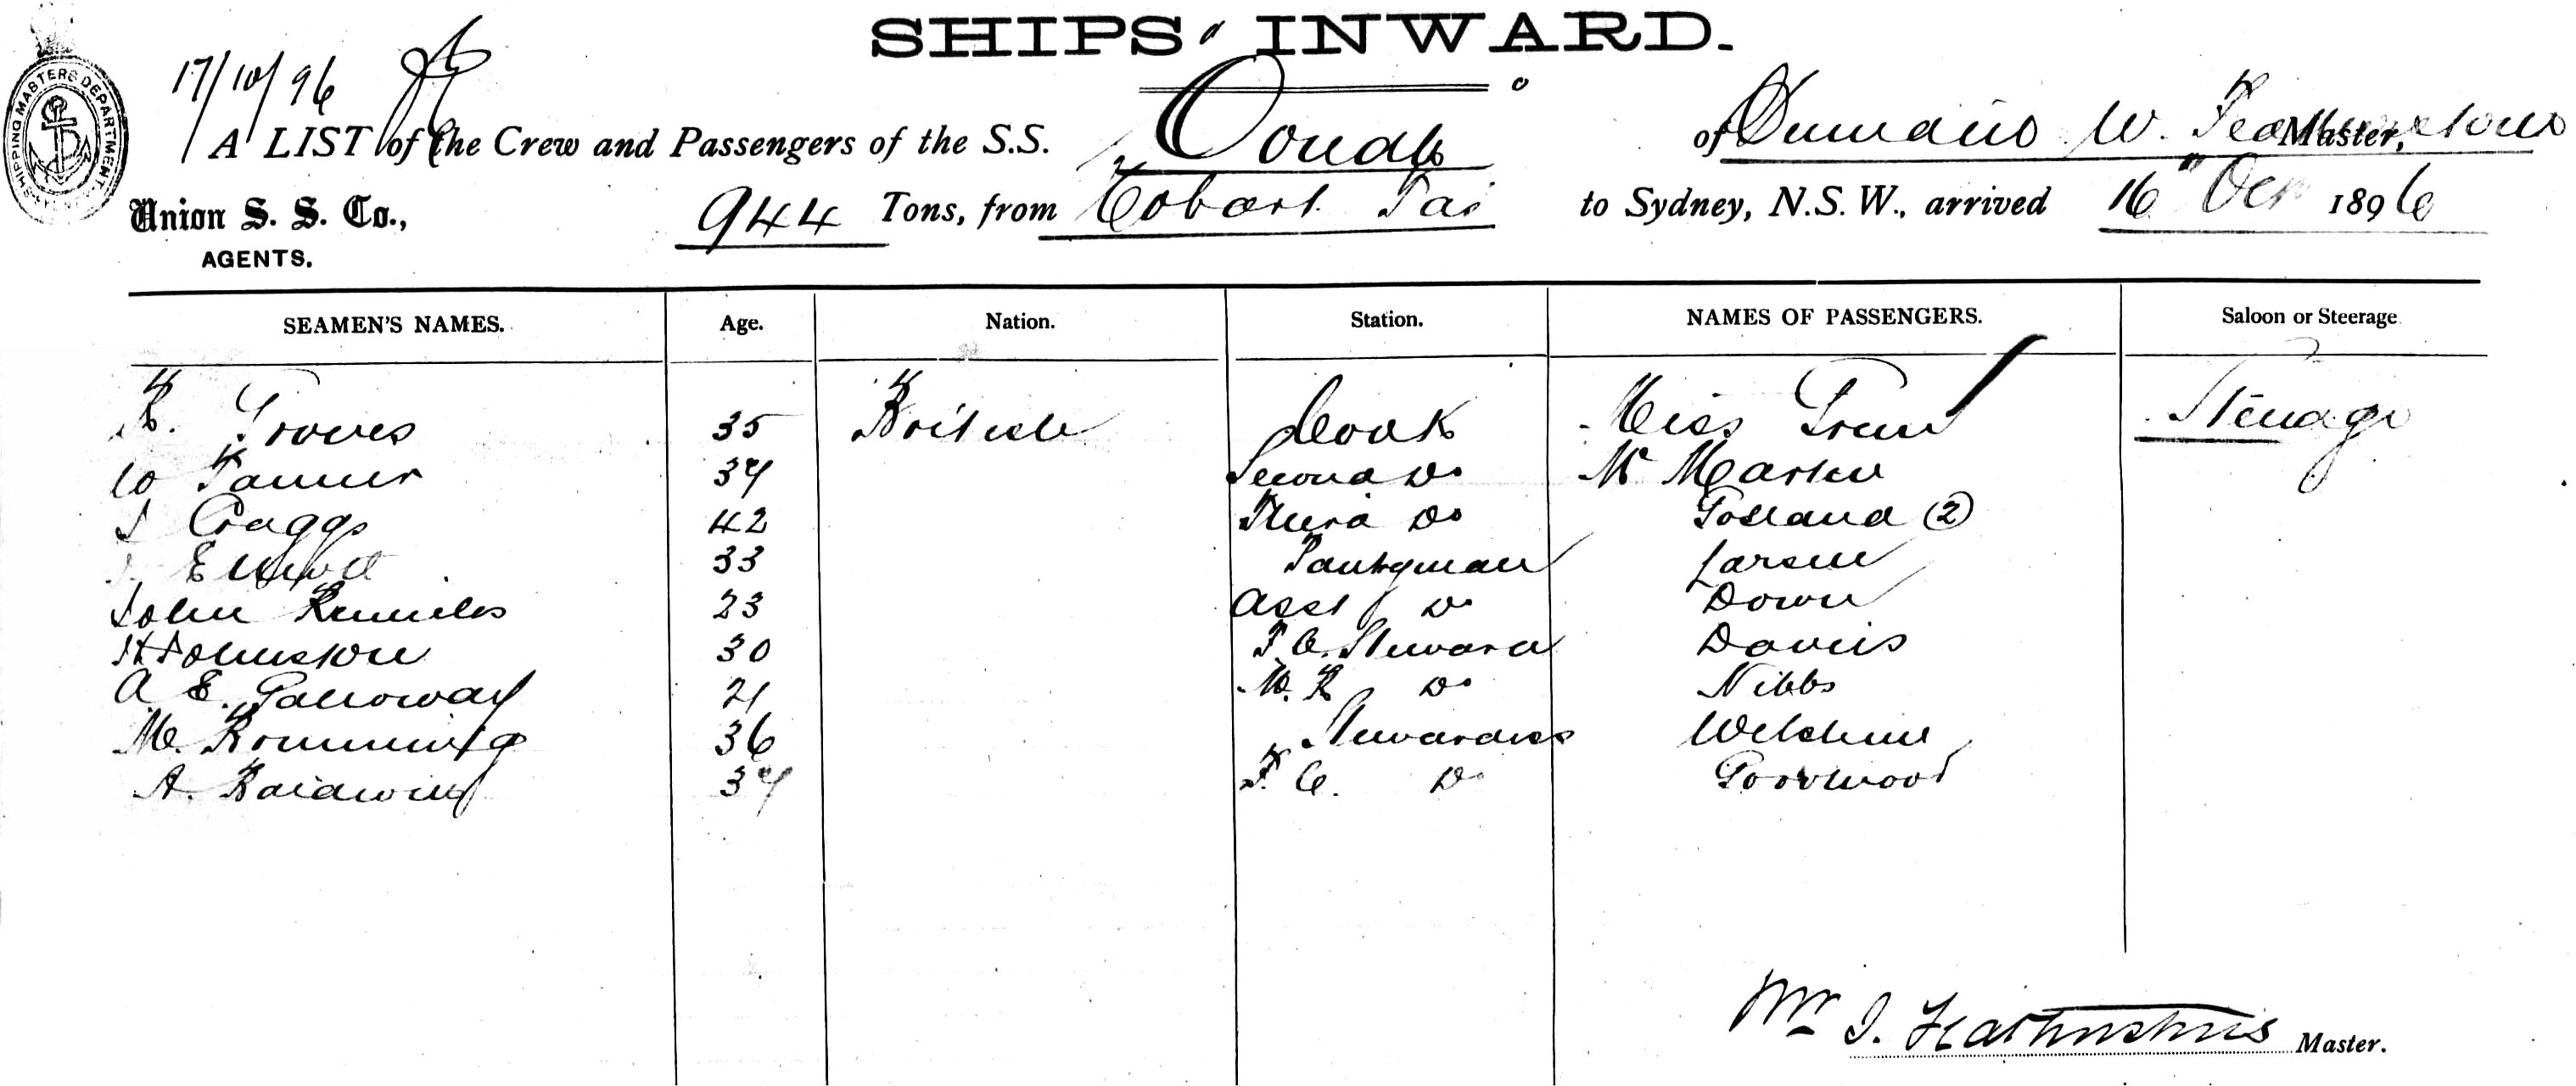 SHIPS' INWARD.
17/10/96
SHIPPING MASTERS DEPARTMENT
A LIST of the Crew and Passengers of the S.S. Oonah of Dunedin W. Featherstone Master,
Union S. S. Co., 944 Tons, from Hobart Tas to Sydney, N.S.W., arrived 16" Oct 1896
AGENTS.
SEAMEN'S NAMES. Age. Nation. Station. NAMES OF PASSENGERS. Saloon or Steerage
R. Groves 35 British Cook Miss Steerage
Tanner 34 Second Do Mr Martin
Craggs 42 Third Do (2)
33 Pantryman Larsen
John 23 Asst Do Down
H Johnston 30 F.C. Steward Davis
A E. Galloway 21 Do Nibbs
M. 36 Stewardess
A. Baldwin 34 F. C. Do Goodwood
Wm J. Featherstone Master.